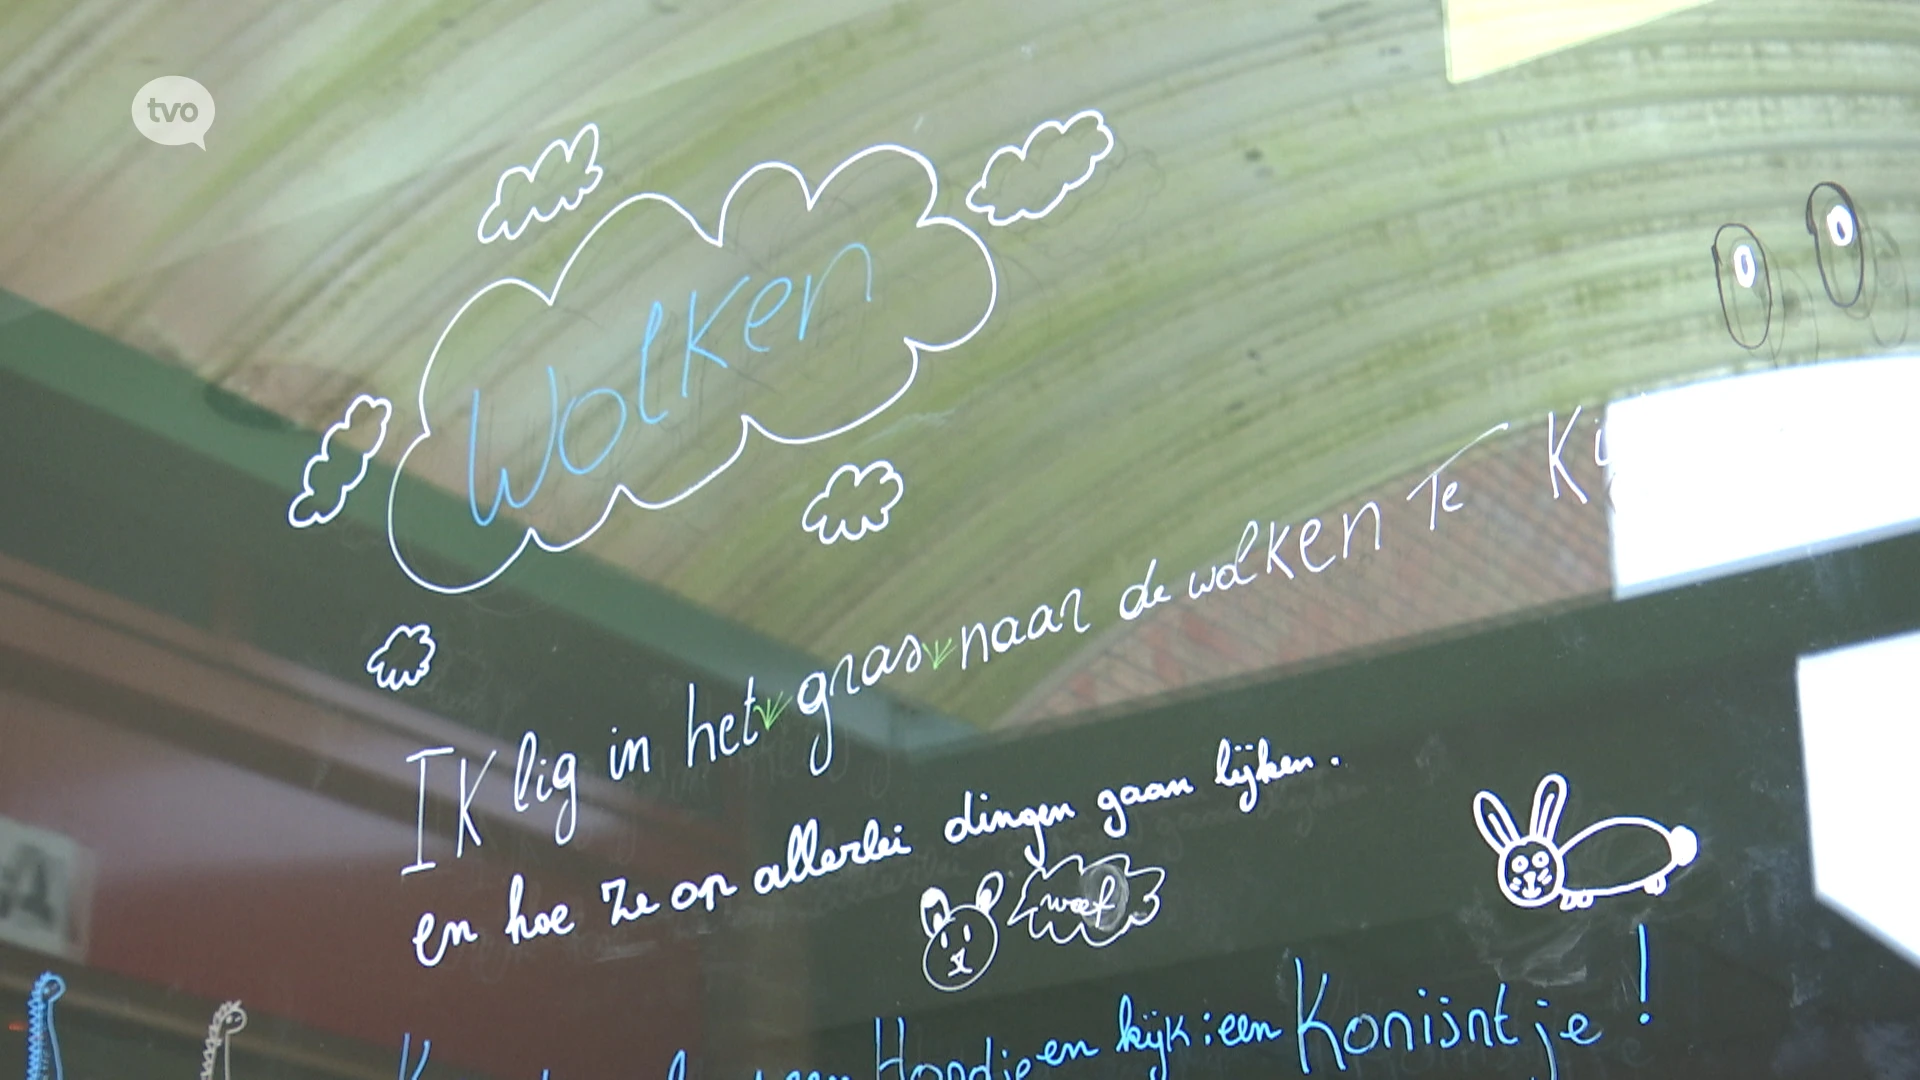 tvo
Wolken
IK lig in het gras naar de wolken Te
en hoe ze op allerlei dingen gaan lijken.
woef
Hondje en kijk : een Konijntje!